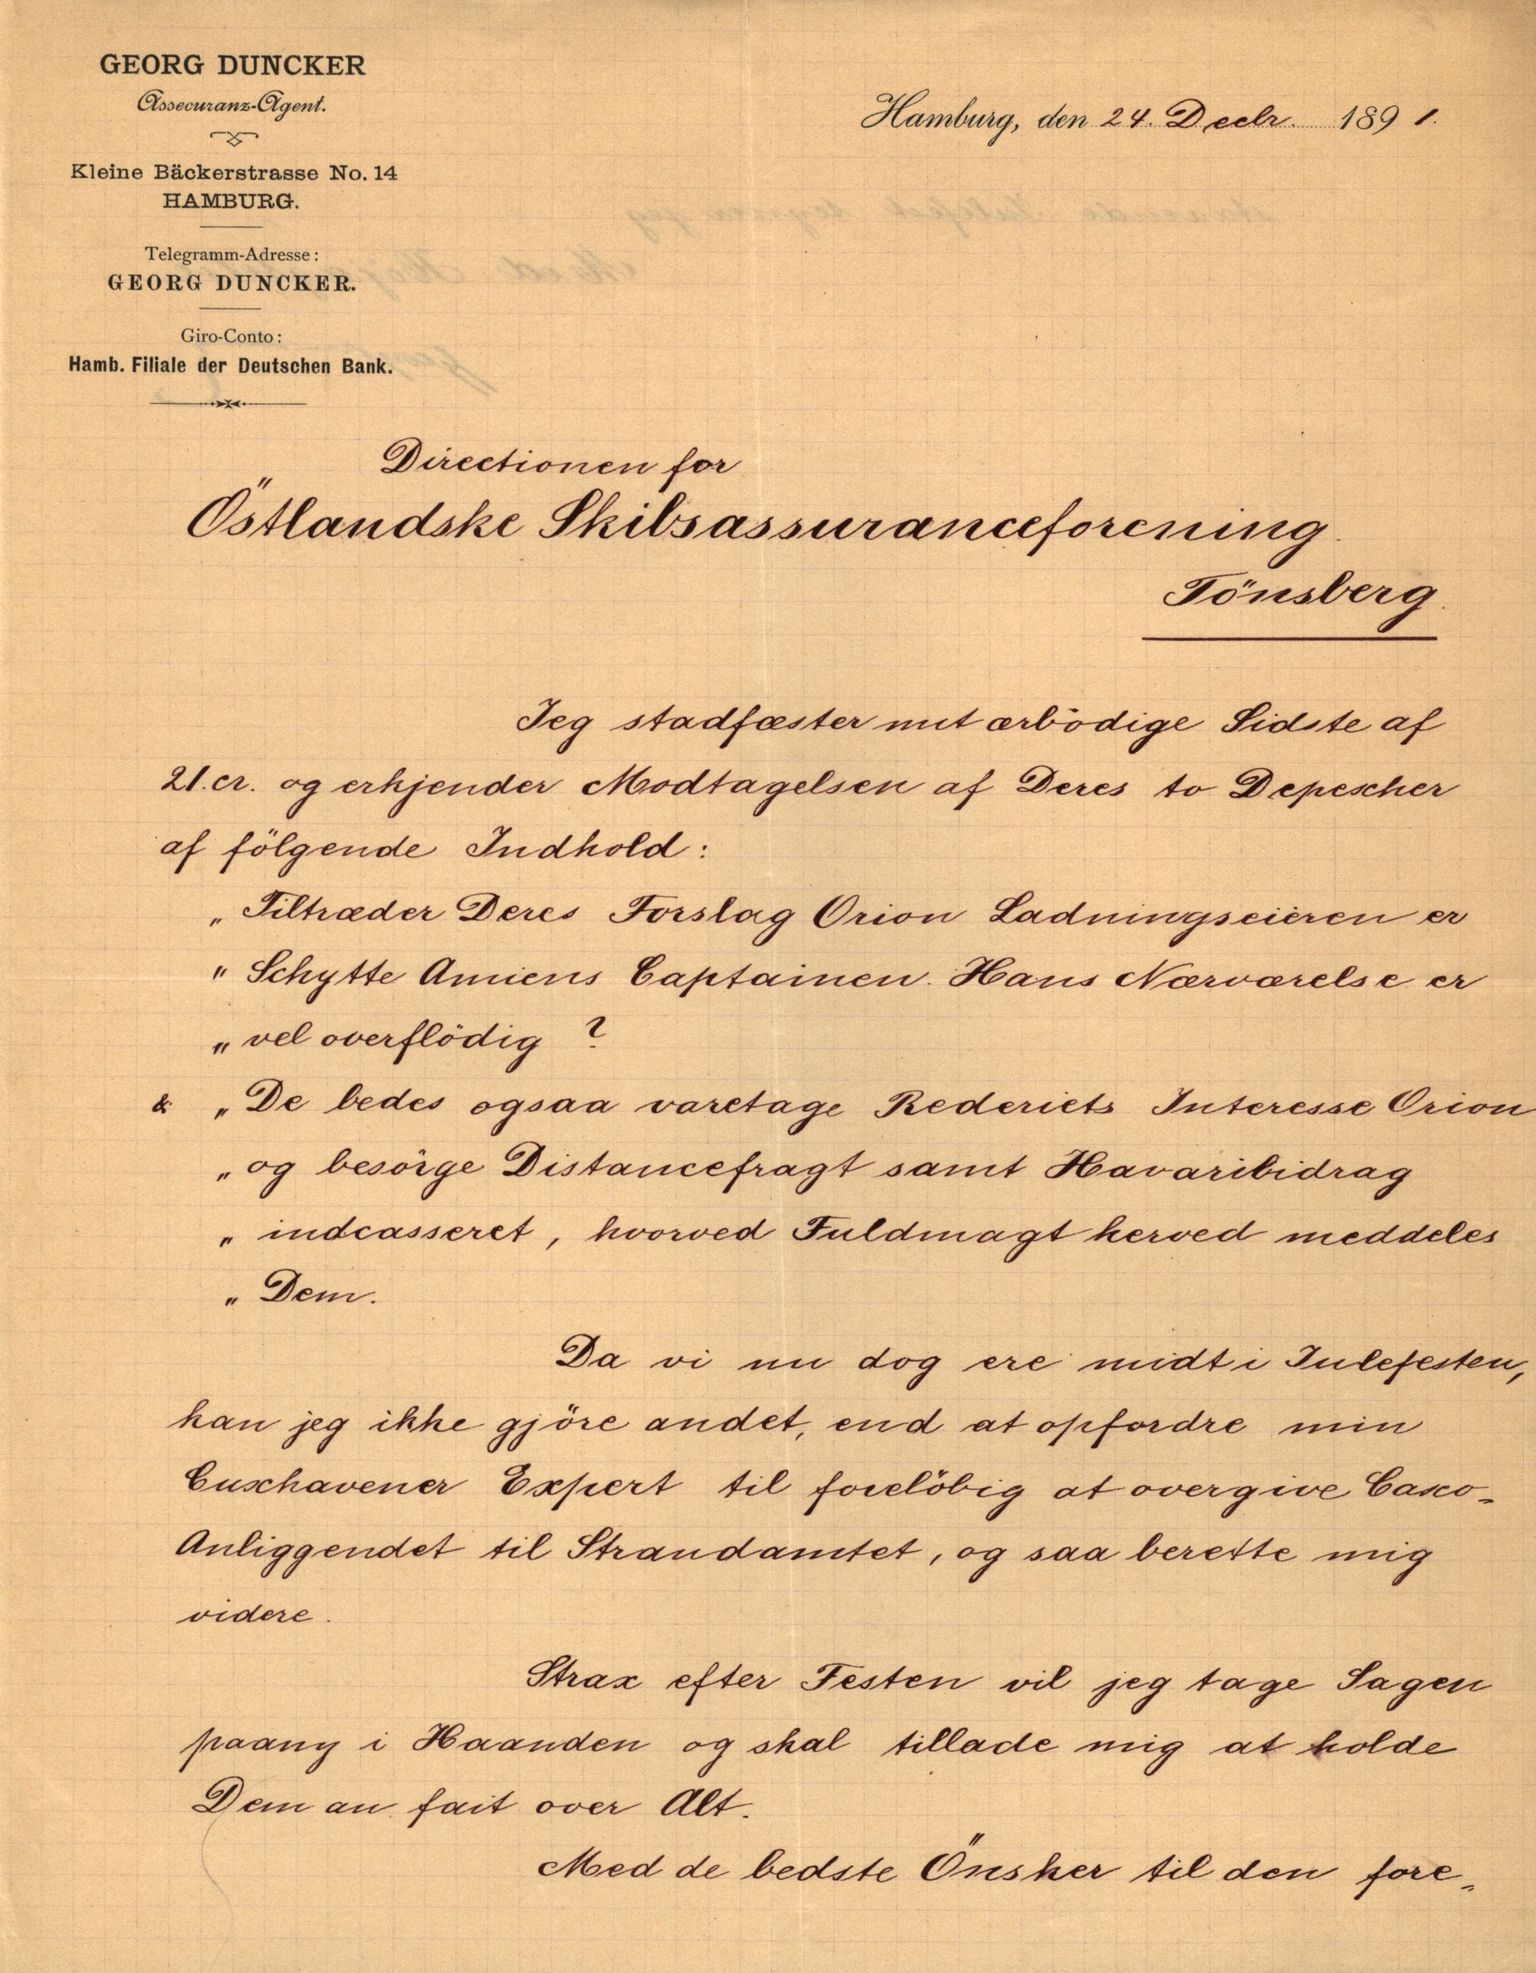 GEORG DUNCKER
Assecuranz-Agent.
Kleine Bäckerstrasse No. 14
HAMBURG.
Telegramm-Adresse:
GEORG DUNCKER.
Giro-Conto:
Hamb. Filiale der Deutschen Bank.
Hamburg, den 24. Decbr. 1891.
Directionen for
Östlandske Skibsassuranceforening.
Tönsberg.
Jeg stadfæster mit ærbödige Sidste af
21. cr. og erkjender Modtagelsen af Deres to Depescher
af fölgende Indhold:
„ Tiltræder Deres Forslag Orion Ladningseieren er
" Schytte Amiens Captainen. Hans Nærværelse er
„ vel overflödig ?
& „ De bedes ogsaa varetage Rederiets Interesse Orion
„ og besörge Distancefragt samt Havaribidrag
„ indcasseret, hvorved Fuldmagt herved meddeles
„ Dem.
Da vi nu dog ere midt i Julefesten,
kan jeg ikke gjöre andet, end at opfordre min
Cuxhavener Expert til forelöbig at overgive Casco-
Anliggendet til Strandamtet, og saa berette mig
videre.
Strax efter Festen vil jeg tage Sagen
paany i Haanden og skal tillade mig at holde
Dem au fait over Alt.
Med de bedste Önsker til den fore-